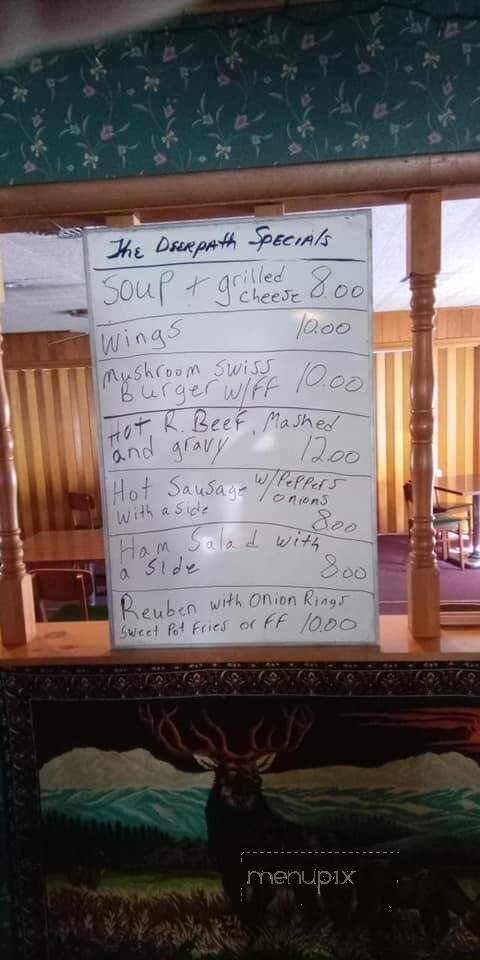 The Deerpath Specials
Soup + grilled
cheese 8.00
Wings 10.00
Mushroom Swiss
Burger w/FF 10.00
Hot R. Beef, Mashed
and gravy 12.00
Hot Sausage w/Peppers
onions
with a side 8.00
Ham Salad with
a side 8.00
Reuben with Onion Rings
Sweet Pot Fries or FF 10.00
menupix